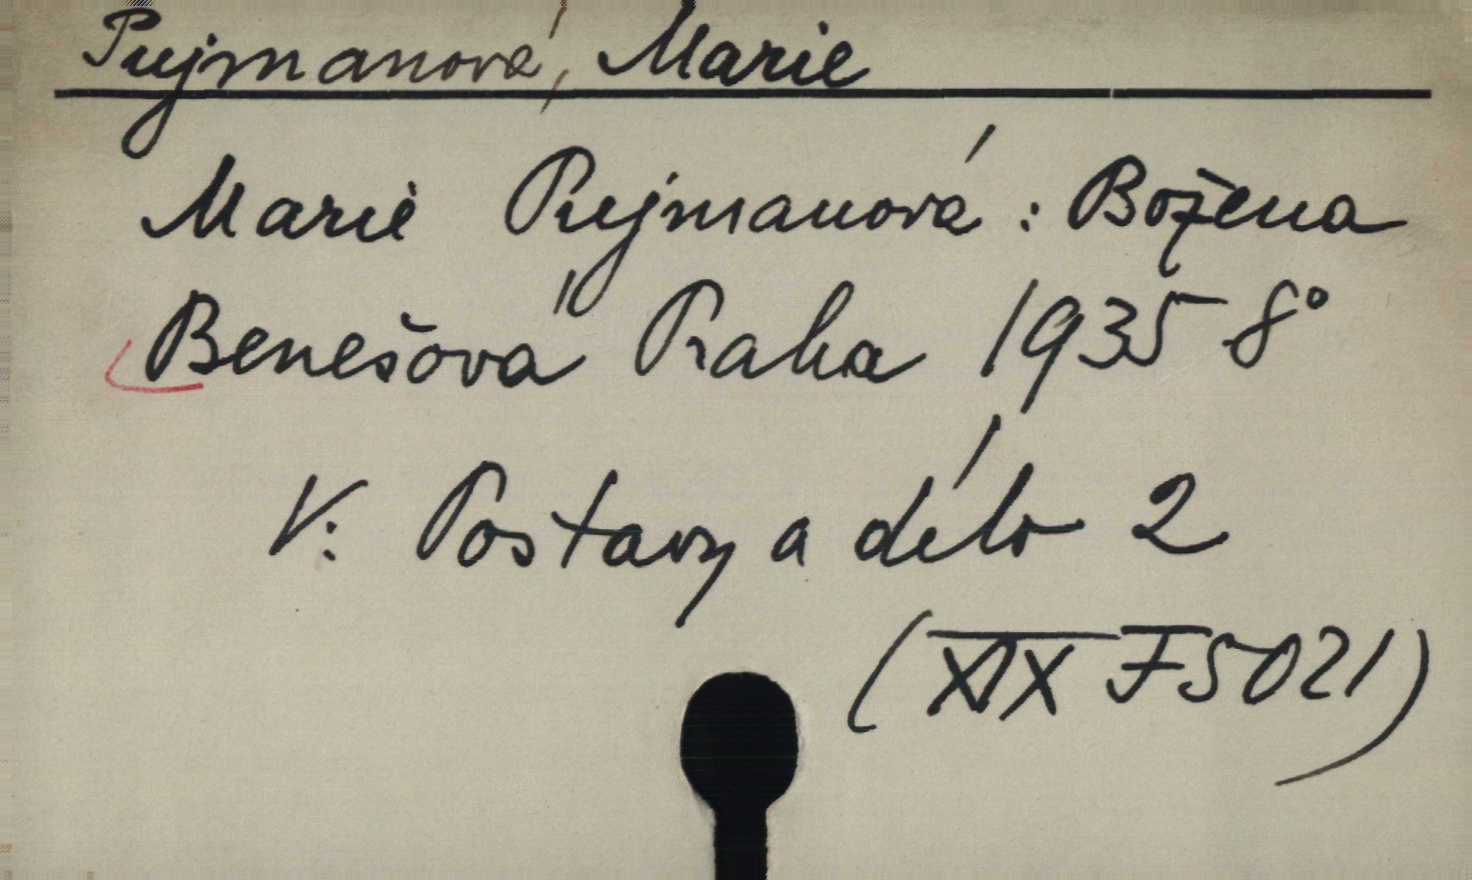 Pujmanová, Marie
Marie Pujmanová: Božena
Benešová Praha 1935 8°
V: Postavy a dílo 2
(XIX F 5021)